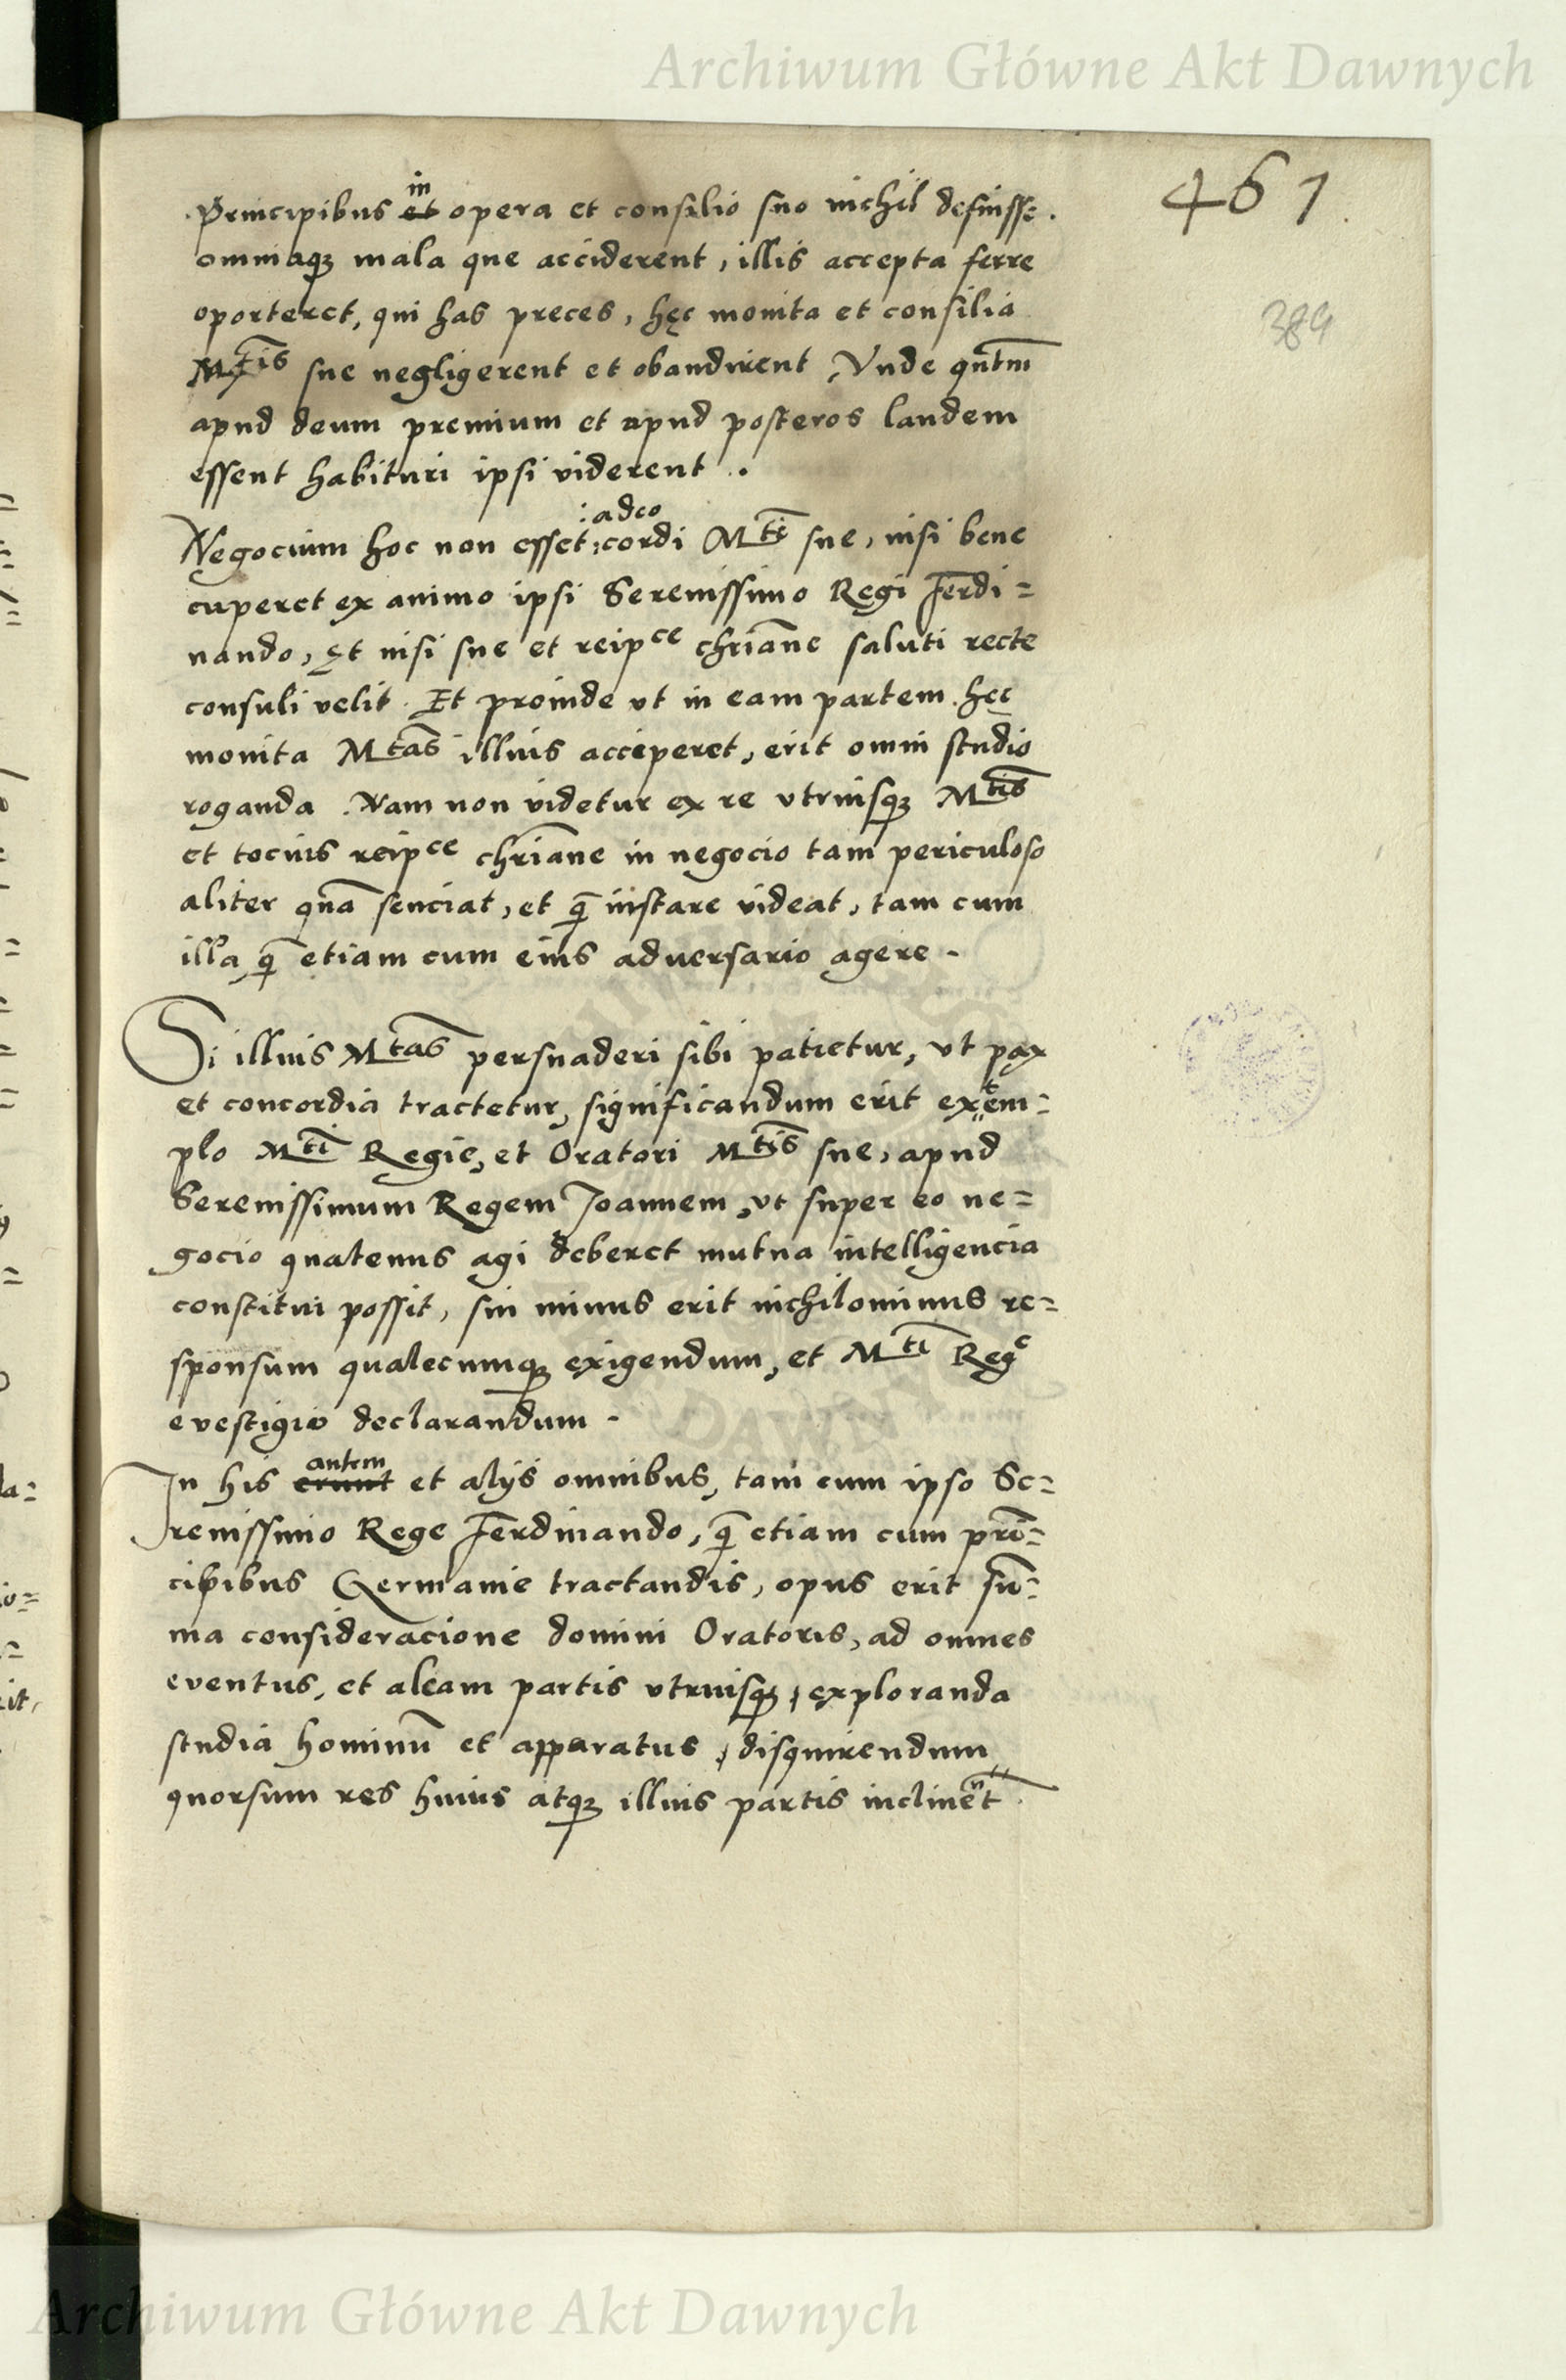 Archiwum Główne Akt Dawnych
461
389
in
Principibus et opera et consilio suo nichil defuisse.
omniaqꝫ mala que acciderent, illis accepta ferre
oporteret, qui has preces, hęc monita et consilia
Mtis sue negligerent et obaudirent, Vnde qntm
apud deum premium et apud posteros laudem
essent habituri ipsi viderent.
:adeo
Negocium hoc non esset:cordi Mti sue, nisi bene
cuperet ex animo ipsi Serenissimo Regi Ferdi=
nando, et nisi sue et reipce chriane saluti recte
consuli velit. Et proinde vt in eam partem hęc
monita Mtas illius acciperet, erit omni studio
roganda. Nam non videtur ex re vtriusqꝫ Mtis
et tocius reipce chriane in negocio tam periculoso
aliter qua senciat, et q̄ instare videat, tam cum
illa q̄ etiam cum eius adversario agere.
Si illius Mtas persuaderi sibi patietur, vt pax
et concordia tractetur, significandum erit extem=
plo Mti Regie, et Oratori Mtis sue, apud
Serenissimum Regem Joannem, vt super eo ne=
gocio quatenus agi deberet mutua intelligencia
constitui possit, sin minus erit nichilominus re=
sponsum qualecumqꝫ exigendum, et Mti Rege
evestigio declarandum.
autem
In his erunt et alijs omnibus, tam cum ipso Se=
renissimo Rege Ferdinando, q̄ etiam cum prin=
cipibus Germanie tractandis, opus erit sū=
ma consideracione domini Oratoris, ad omnes
eventus, et aleam partis vtriusqꝫ, exploranda
studia hominū et apparatus, disquirendum
quorsum res huius atqꝫ illius partis inclinent.
Archiwum Główne Akt Dawnych